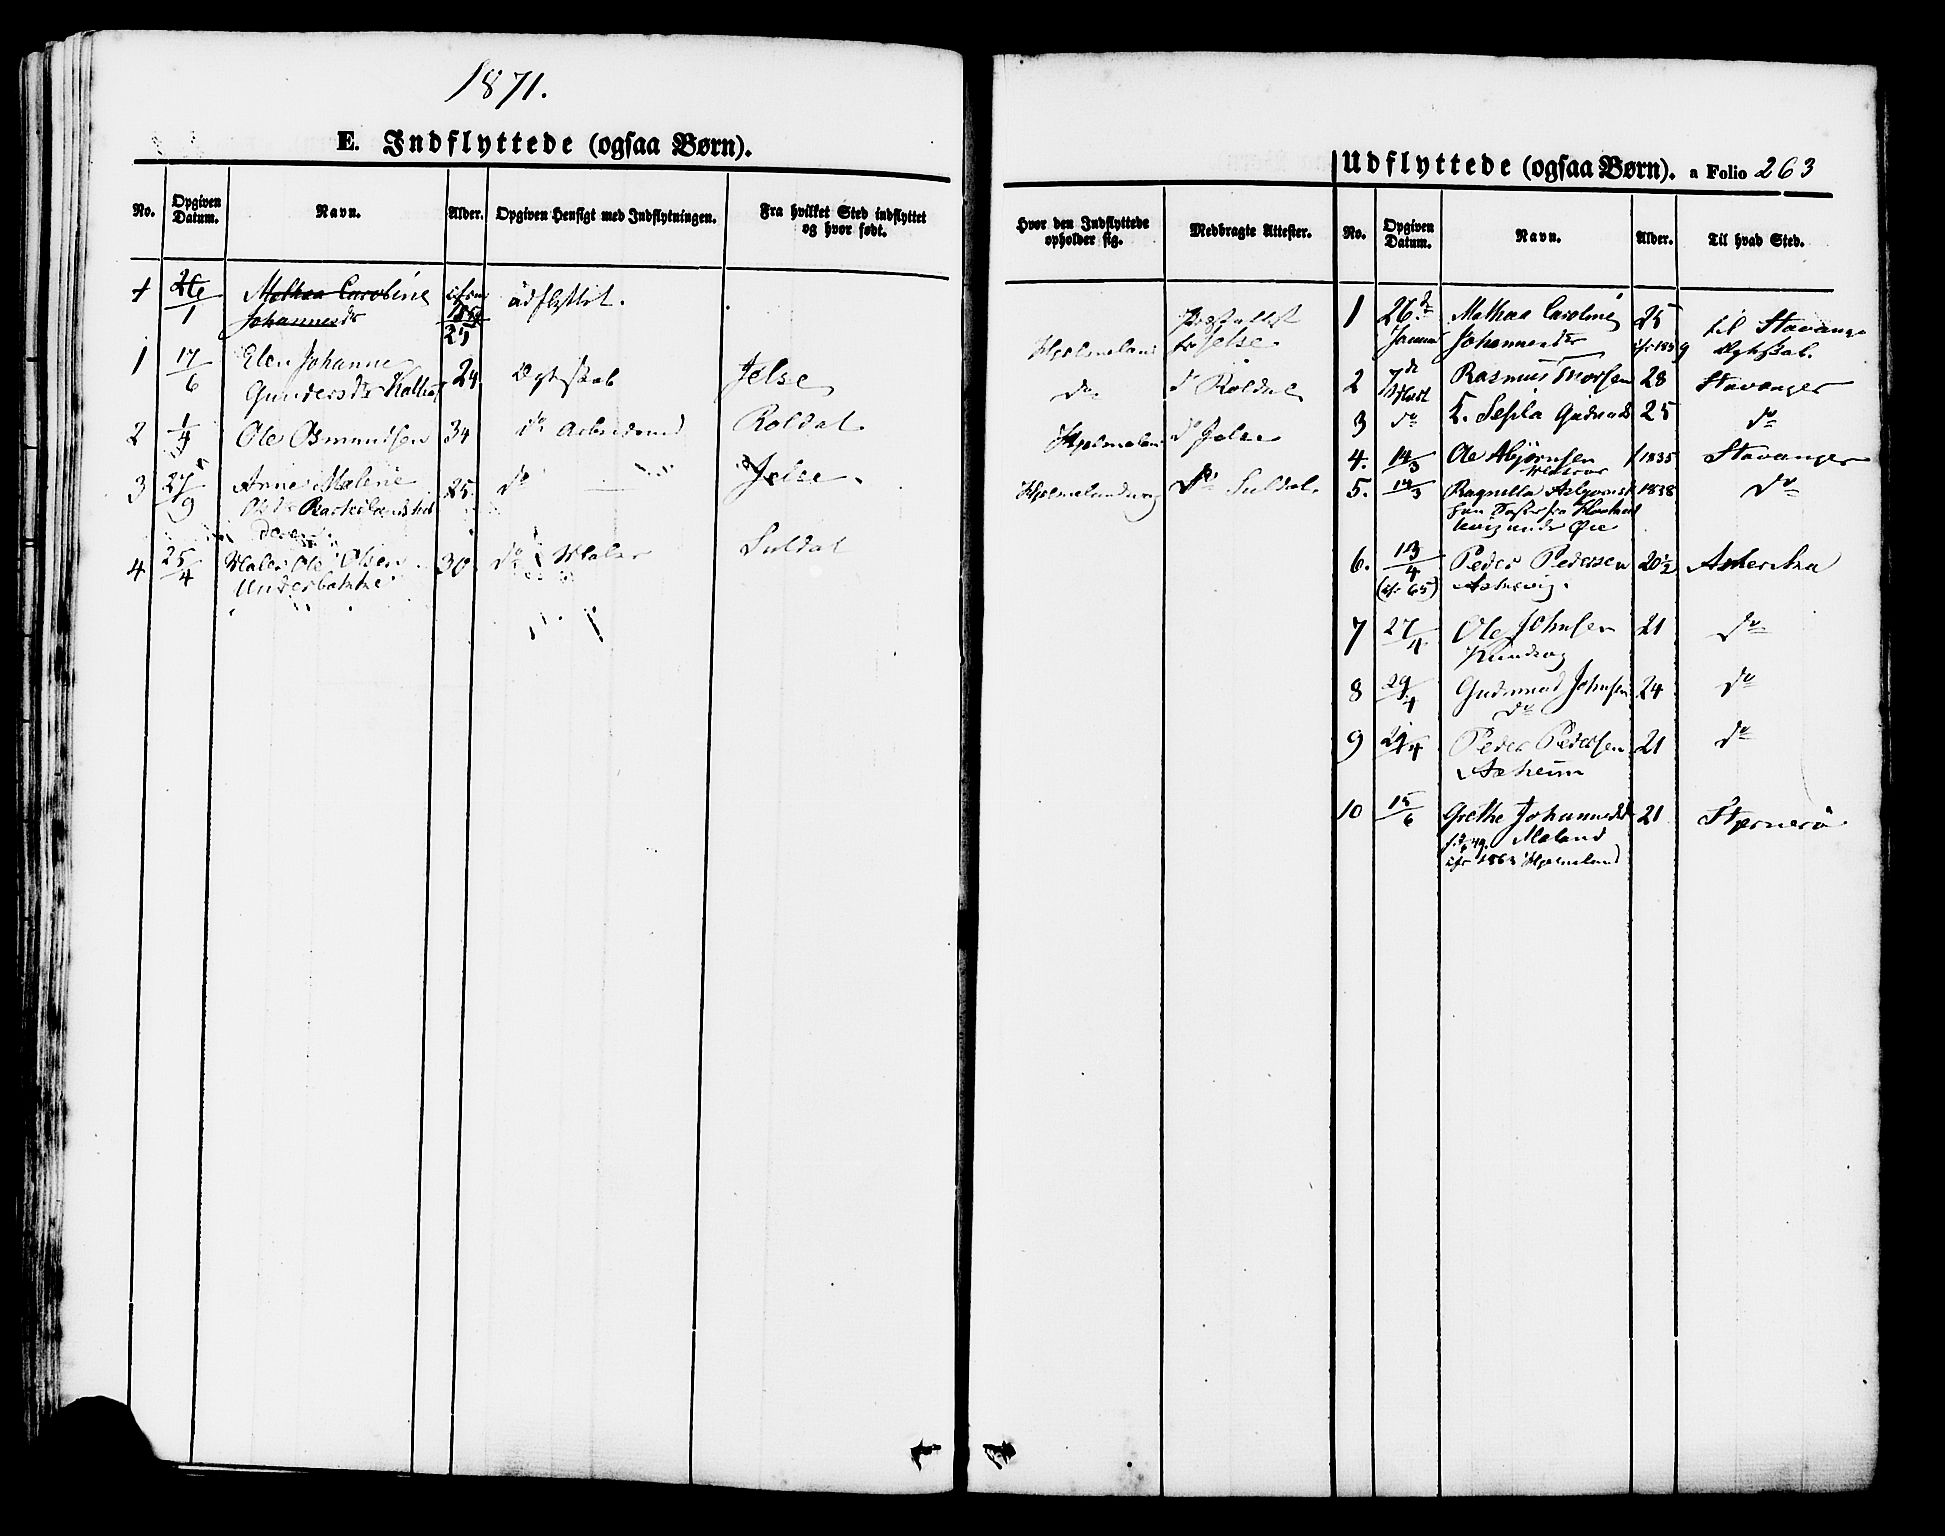 1871.
E. Indflyttede (ogsaa Børn).
No.
Opgiven Datum.
Navn.
Alder.
Opgiven Hensigt med Indflytningen.
Fra hvilket Sted indflyttet
og hvor født.
1 26/1 Mathea Caroline udflyttet.
Johannesdr 25
1 17/6 Elen Johanne 24 Ægteskab Jelse
Gundersdr
2 1/4 Ole Osmundsen 34 do Røldal
3 27/9 Anne Malene 25. do Jelse.
4 25/4 Maler Ole Olsen 30. do Maler Suldal
Underbakke
Udflyttede (ogsaa Børn). a Folio 263
Hvor den Indflyttede
opholder sig.
Medbragte Attester.
No.
Opgiven
Datum.
Navn.
Alder.
Til hvad Sted.
Hjelmeland
Jelse
do do Røldal
Hjelmeland do Jelse
do Suldal
1 26de Mathea Caroline 25 til Stavanger
Januar Johannesdr Ægteskab.
2 7de Rasmus Thorsen 28 Stavanger
3 do 25 do
4. 14/3 Ole Abjørnsen 1835 Stavanger
5. 14/3 Ragnilla 1838 do
6. 13/4 Peder Pedersen 20½ Amerika
(cfr 65)
7 27/4 Ole Johnsen 21 do
8 29/4 Gudmund Johnsen 24 do
do
9 29/4 Peder Pedersen 21 do
Aaheim
10 15/6 Grethe Johannesdr 21 Stjernerø
Meland
cfr 1863 Hjelmeland